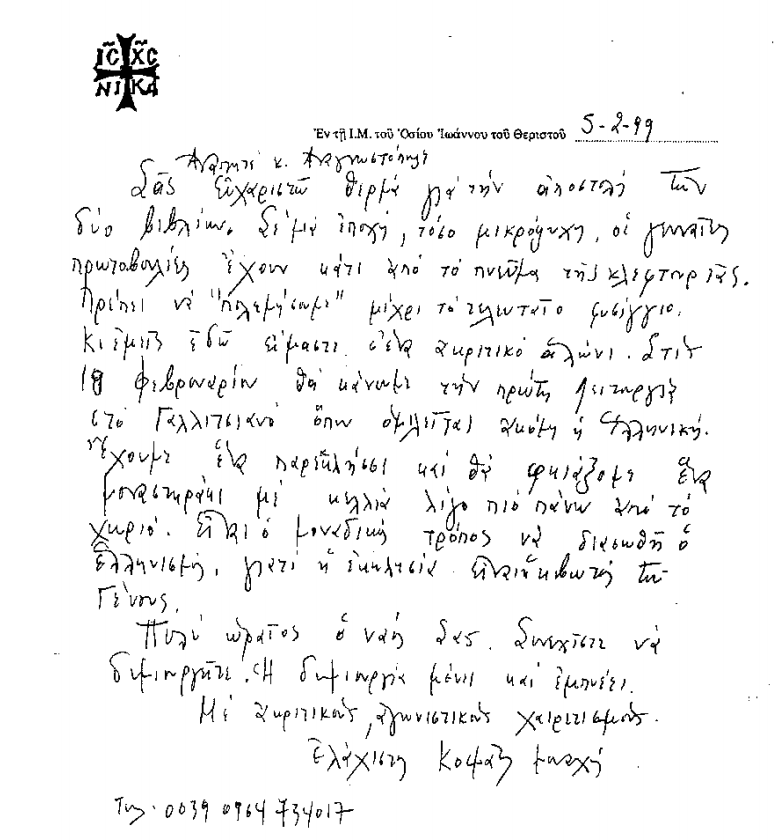 ΙC XC
ΝΙΚΑ
Ἐν τῇ Ι.Μ. τοῦ Ὁσίου Ἰωάννου τοῦ Θεριστοῦ 5-2-99
Ἀγαπητέ κ. Ἀναγνωστόπουλε
Σᾶς εὐχαριστῶ θερμά γιά τήν ἀποστολή τῶν
δύο βιβλίων. Σέ μιά ἐποχή, τόσο μικρόψυχη, οἱ γενναῖες
πρωτοβουλίες ἔχουν κάτι ἀπό τό πνεῦμα τῆς κλεφτουριᾶς.
Πρέπει νά "πολεμήσωμε" μέχρι τό τελευταῖο φυσίγγιο.
Κι ἐμεῖς ἐδῶ εἴμαστε σ' ἕνα ἀκριτικό ἁλώνι. Στίς
18 Φεβρουαρίου θά κάνωμε τήν πρώτη λειτουργία
στό Γαλλιτσιανό ὅπου ὁμιλεῖται ἀκόμη ἡ Ἑλληνική.
Ἔχουμε ἕνα παρεκκλήσι καί θά φτιάξομε ἕνα
μοναστηράκι μέ κελλιά λίγο πιό πάνω ἀπό τό
χωριό. Εἶναι ὁ μοναδικός τρόπος νά διασωθῆ ὁ
ἑλληνισμός, γιατί ἡ ἐκκλησία εἶναι ἡ κιβωτός τοῦ
Γένους.
Πολύ ὡραῖος ὁ ναός σας. Συνεχίστε νά
δημιουργῆτε. Ἡ δημιουργία μένει καί ἐμπνέει.
Μέ ἀκριτικούς, ἀγωνιστικούς χαιρετισμούς.
Ἐλάχιστος Κοσμᾶς μοναχός
Τηλ. 0039 0964 734017